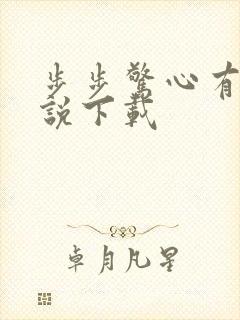 步步驚心有
說下載
卓月凡星